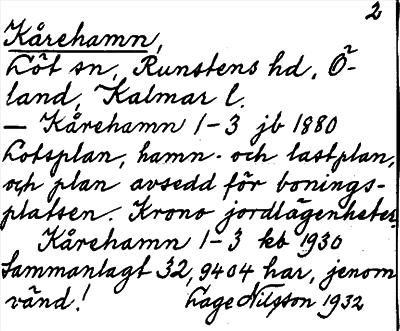 2
Kårehamn,
Löt sn, Runstens hd, Ö-
land, Kalmar l.
— Kårehamn 1-3 jb 1880
Lotsplan, hamn- och lastplan,
och plan avsedd för bonings-
platsen. Krono jordlägenheter.
Kårehamn 1-3 kb 1930
Sammanlagt 32,9404 har, jenom
vänd! Lage Nilsson 1932